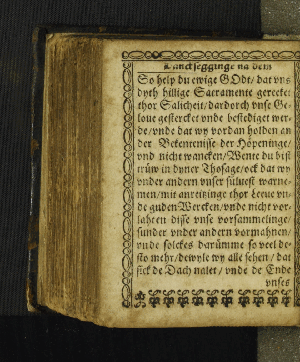 Dancksegginge na dem
So help du ewige GOdt / dat vns
dyth hillige Sacramente gerecke
thor Salicheit / dardorch vnse Ge-
loue gestercket vnde befestiget wer-
de / vnde dat wy vordan holden an
der Bekentenisse der Höpeninge /
vnd nicht wancken / Wente du bist
trüw in dyner Thosage / ock dat wy
vnder andern vnser süluest warne-
men / mit anreitzinge thor Leue vn-
de guden Wercken / vnde nicht vor-
lahten disse vnse vorsammelinge /
sunder vnder andern vormahnen /
vnde solckes darümme so veel de-
sto mehr / dewyle wy alle sehen / dat
sick de Dach nalet / vnde de Ende
vnses